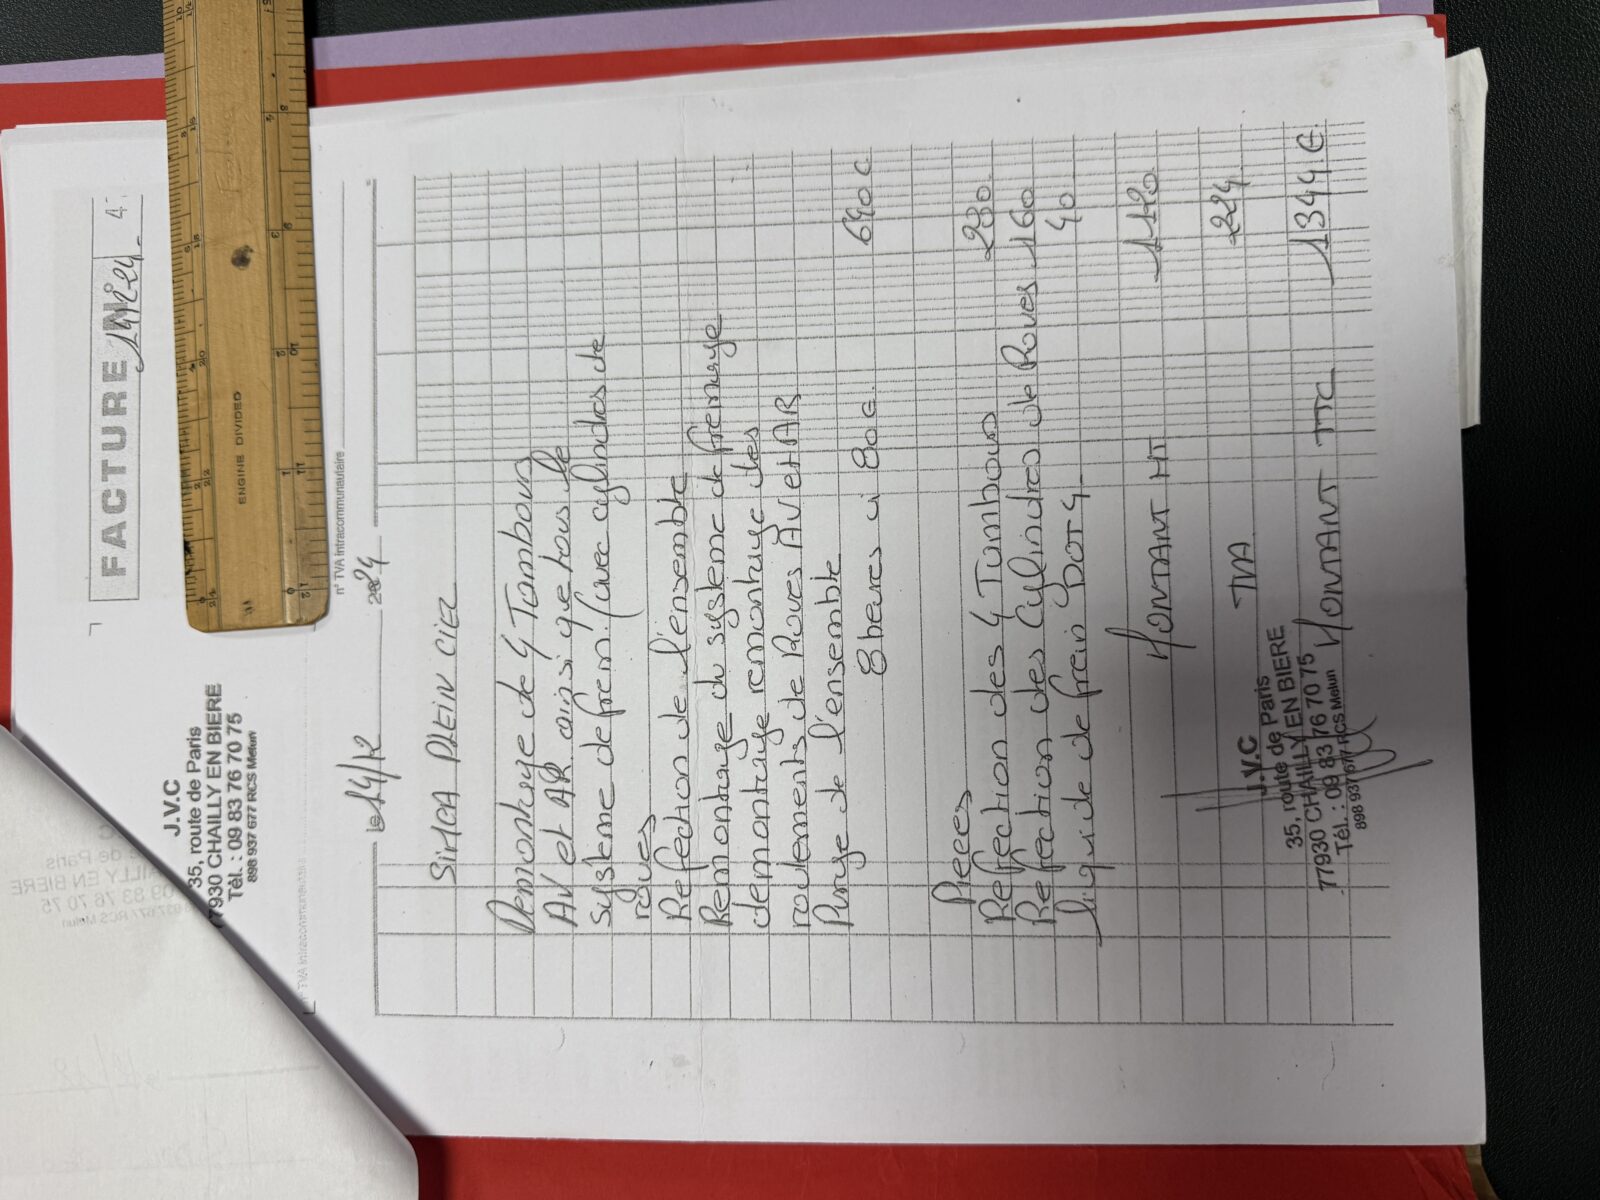 FACTURE N°
J.V.C
35, route de Paris
77930 CHAILLY EN BIERE
Tél. : 09 83 76 70 75
898 937 677 RCS Melun
n° TVA Intracommunautaire
le 14/12 2024
SIMCA PLEIN CIEL
Demontage de 4 Tambours
AV et AR ainsi que tous le
systeme de frein (avec cylindres de
roues
Refection de l'ensemble
Remontage du systeme de freinage
demontage remontage des
roulements de Roues AV et AR
Purge de l'ensemble
8 heures a 80 € 640 €
Pieces
Refrection des 4 Tambours 280
Refrection des Cylindres de Roues 160
liquide de frein DOT 4 40
MONTANT HT 1120
TVA 224
MONTANT TTC 1344 €
J.V.C
35, route de Paris
77930 CHAILLY EN BIERE
Tél. : 09 83 76 70 75
898 937 677 RCS Melun
ENGINE DIVIDED